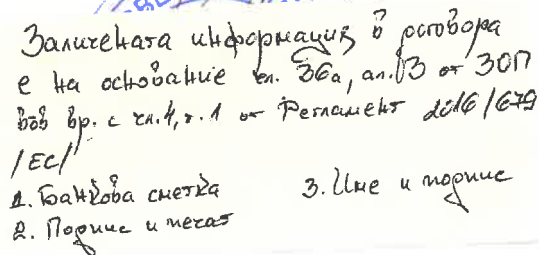 Заличената информация в договора
е на основание чл. 36а, ал. 3 от ЗОП
във вр. с чл. 4, т. 1 от Регламент 2016/679
/ЕС/
1. Банкова сметка
3. Име и подпис
2. Подпис и печат